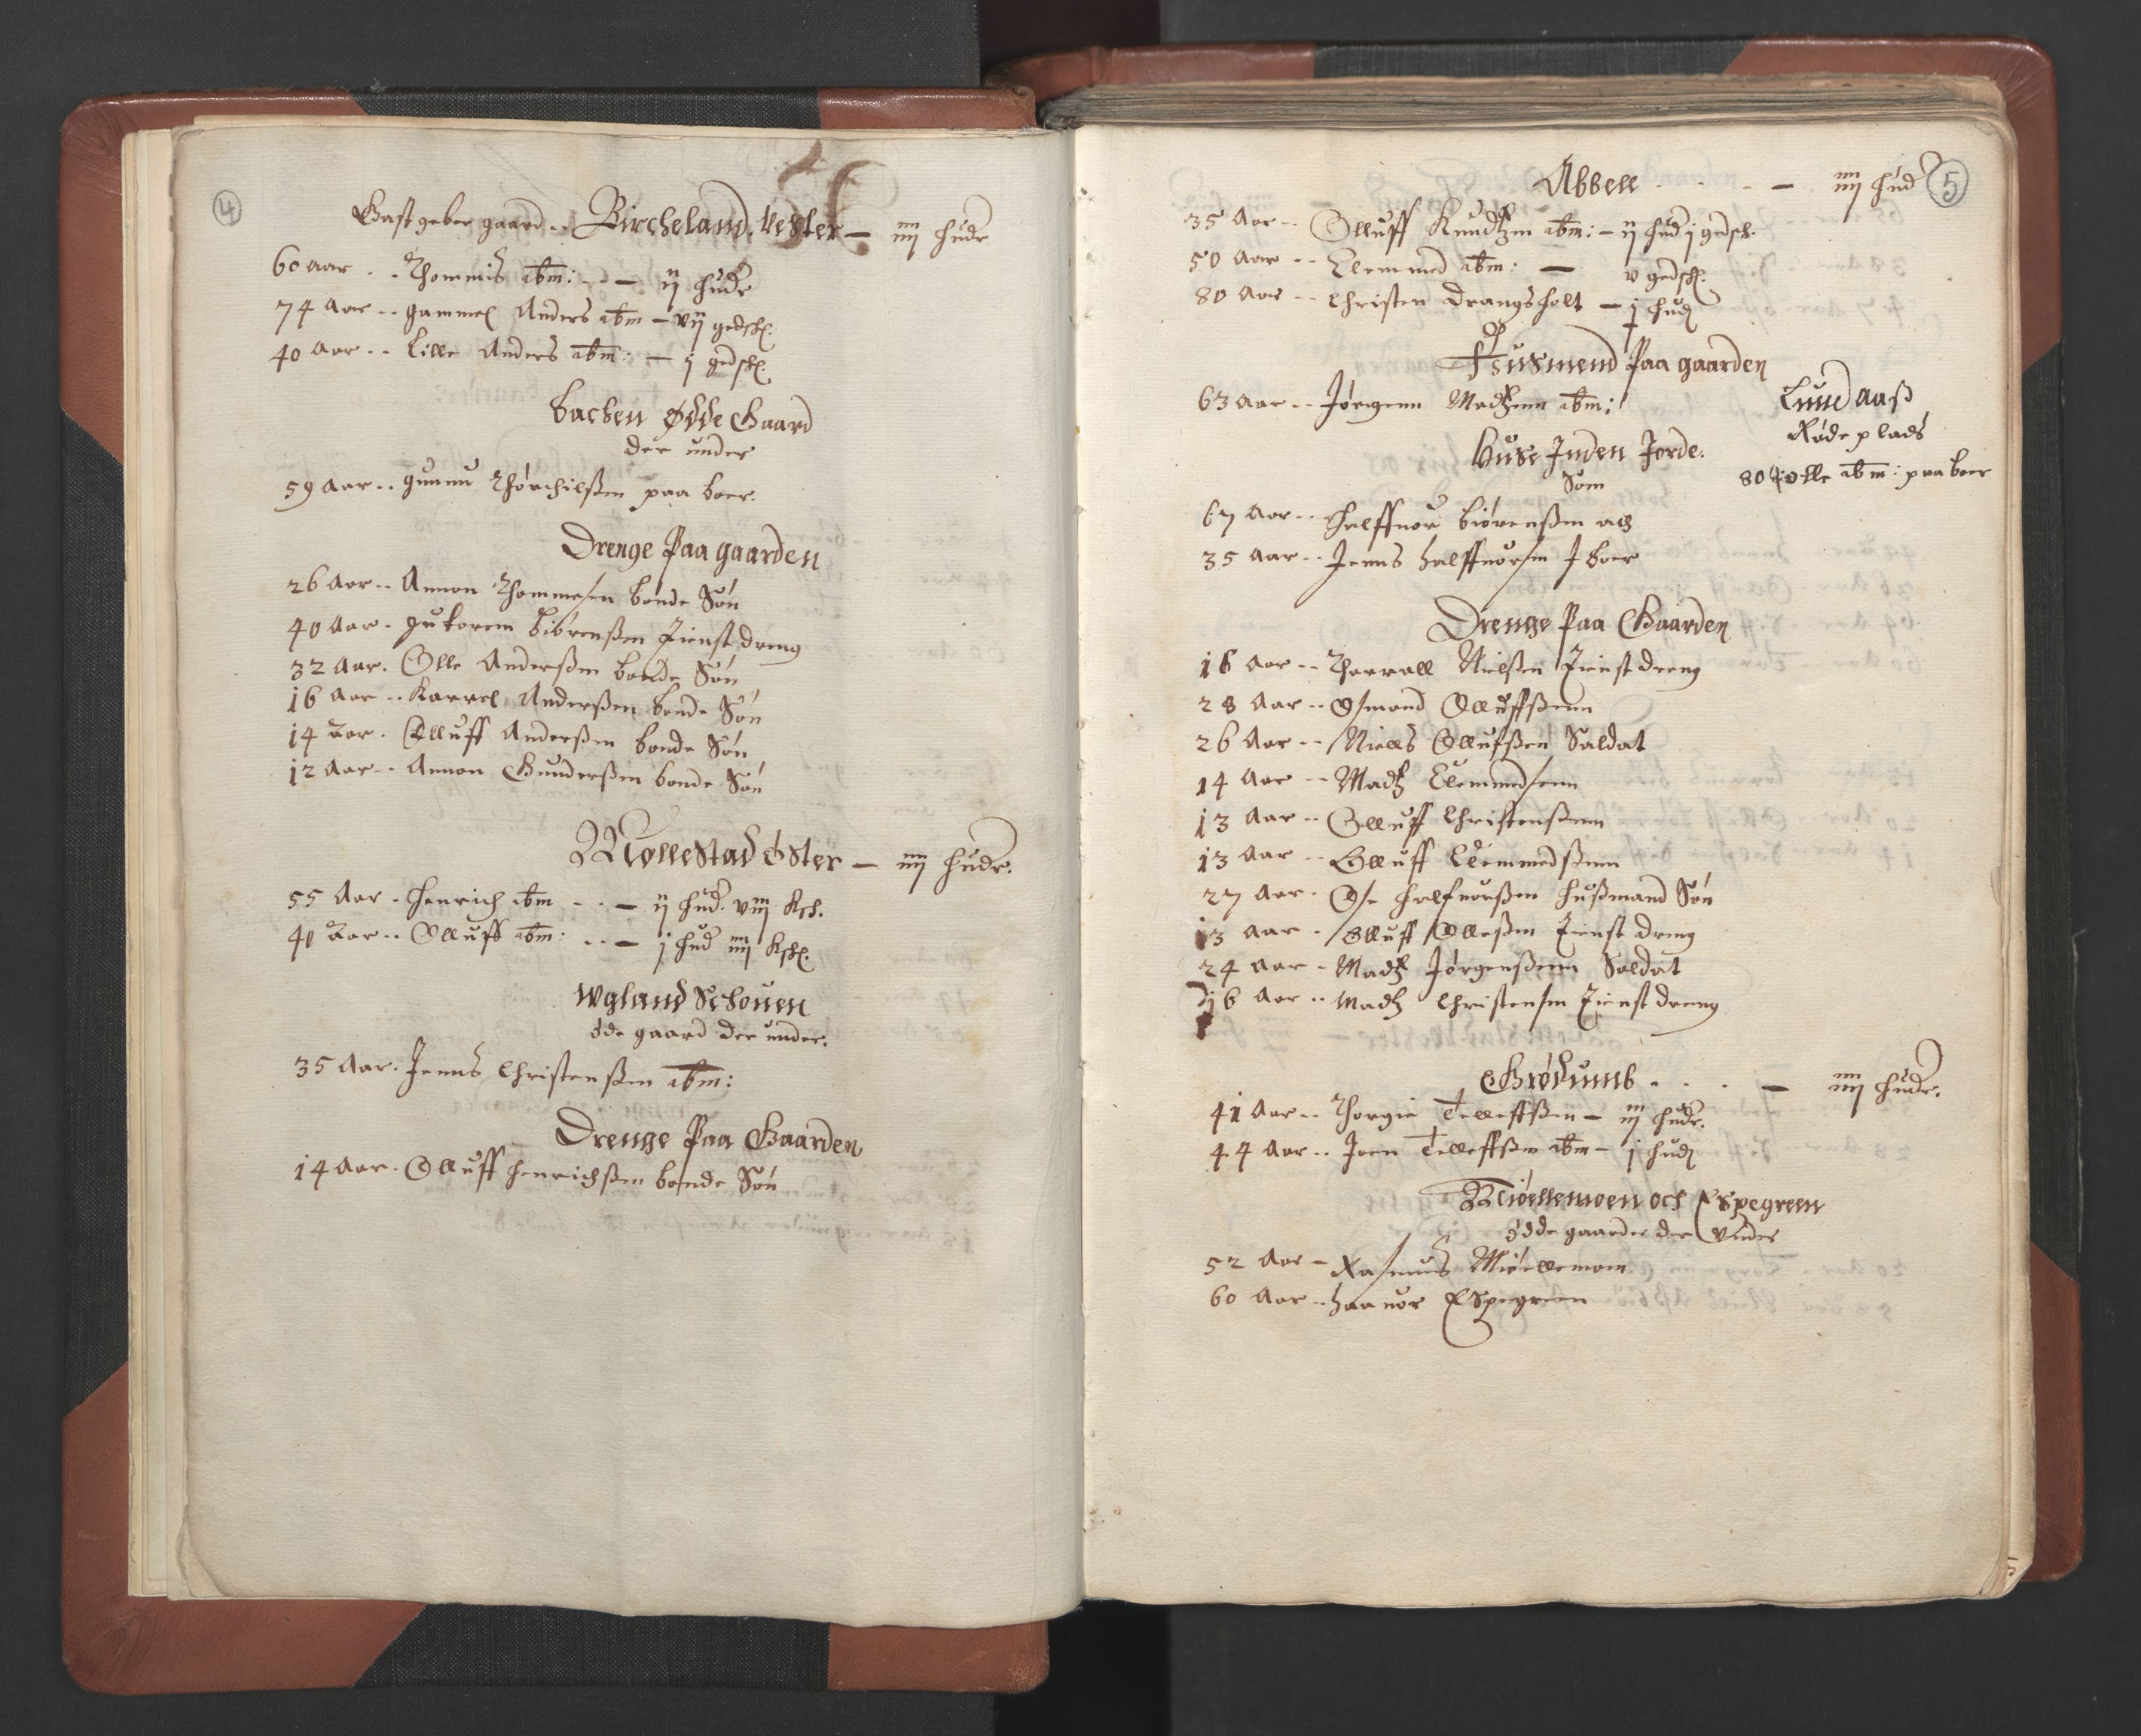 4
Gastgeber gaard .. Bircheland. Vester — iiij hudr
60 aar .. Thommis ibm: .. — ij hudr
74 Aar .. gammel Anders ibm — vij gedsk.
40 Aar .. Lille Anders ibm: — j gedsk.
backen Ødde Gaard
der under
59 aar .. gunnu Thörchilßen paa boer.
Drenge Paa gaarden
26 Aar .. Annon Thommesen bonde Sön
40 Aar . gutorem biörenßen Tienst dreng
32 Aar . Olle Anderßen bonde Sön
16 Aar .. Karrel Anderßen bonde Sön
14 Aar . Olluff Anderßen bonde Sön
12 Aar .. Annon Gunderßen bonde Sön
Møllestad Øster — iiij hudr.
55 Aar . Henrich ibm .. — ij hud. viij Ksk.
40 Aar .. Olluff ibm: .. — j hud iiij Ksk.
Wgland Schouen
öde gaard der under.
35 Aar . Jenns Christenßen ibm:
Drenge Paa Gaarden
14 Aar . Olluff Henrichßen bonde Sön
5
Abbell . . . — iiij hud
35 Aar .. Olluff Knudtzen ibm: — ij hud j gedsk.
50 Aar .. Clemmed ibm: — v gedsk.
80 Aar .. Christen Drangsholt — j hud
Husmend Paa gaarden
63 aar .. Jørgenn Madtzenn ibm:
Lund aaß
Røde plads
80 Olle ibm: paa boer
Huse Inden Jorde.
Som
67 Aar .. Halffuor biörenßen och
35 Aar .. Jenns Halffuorsen J boer
Drenge Paa Gaarden
16 Aar .. Tharrall Nielßen Tienst dreng
28 Aar .. Osmond Olluffßenn
26 Aar .. Niells Ollufßen Saldat
14 Aar .. Madtz Clemmedsenn
13 Aar .. Olluff Christenßenn
13 Aar .. Olluff Clemmedßenn
27 Aar . Ose Halfuorßen Hußmand Sön
13 Aar . Olluff Olleßen Tienst dreng
24 Aar . Madtz Jørgenßenn Saldat
16 Aar .. Madtz Christensen Tienst dreng
Grödumb . . . — iiij hudr.
41 Aar .. Thorgie Telleffßen — iij hudr.
44 Aar .. Joen Telleffßen ibm — j hud
Miöellemoen och Espegreen
ödde gaarde der Vnder
52 Aar — Rasmus Miöellemoen
60 Aar .. Haauor Espegreen